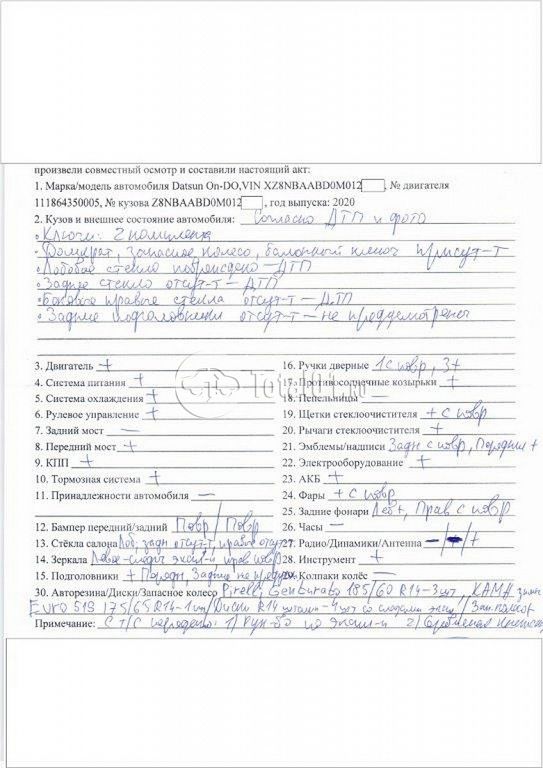 произвели совместный осмотр и составили настоящий акт:
1. Марка/модель автомобиля Datsun On-DO,VIN XZ8NBAABD0M012, № двигателя
111864350005, № кузова Z8NBAABD0M012, год выпуска: 2020
2. Кузов и внешнее состояние автомобиля: Согласно ДТП и фото
• Ключи: 2 комплекта
• Домкрат, запасное колесо, балонный ключ присут-т
• Лобовое стекло повреждено – ДТП
• Заднее стекло отсут-т – ДТП
• Боковые правые стекла отсут-т – ДТП
• Задние подголовники отсут-т – не предусмотрены
3. Двигатель +
4. Система питания +
5. Система охлаждения +
6. Рулевое управление +
7. Задний мост –
8. Передний мост +
9. КПП +
10. Тормозная система +
11. Принадлежности автомобиля –
12. Бампер передний/задний Повр / Повр
13. Стёкла салона Лоб, задн отсут-т, правые отсут
14. Зеркала Левое-следы экспл-и, прав повр
15. Подголовники + Передн, Задние не предусм
16. Ручки дверные 1 с повр, 3+
17. Противосолнечные козырьки +
18. Пепельницы –
19. Щетки стеклоочистителя + с повр
20. Рычаги стеклоочистителя +
21. Эмблемы/надписи Задн с повр, Передние +
22. Электрооборудование +
23. АКБ +
24. Фары + с повр
25. Задние фонари Лев+, Прав с повр
26. Часы –
27. Радио/Динамики/Антенна –/+/+
28. Инструмент +
29. Колпаки колёс –
30. Авторезина/Диски/Запасное колесо Pirelli Cinturato 185/60 R14-3шт, КАМА
Euro 519 175/65 R14-1шт/Диски R14 штамп-4шт со следами экспл/Зап.колесо+
Примечание: С Т/С передано: 1) Рук-во по экспл-и 2) Сервисная
Total01.ru